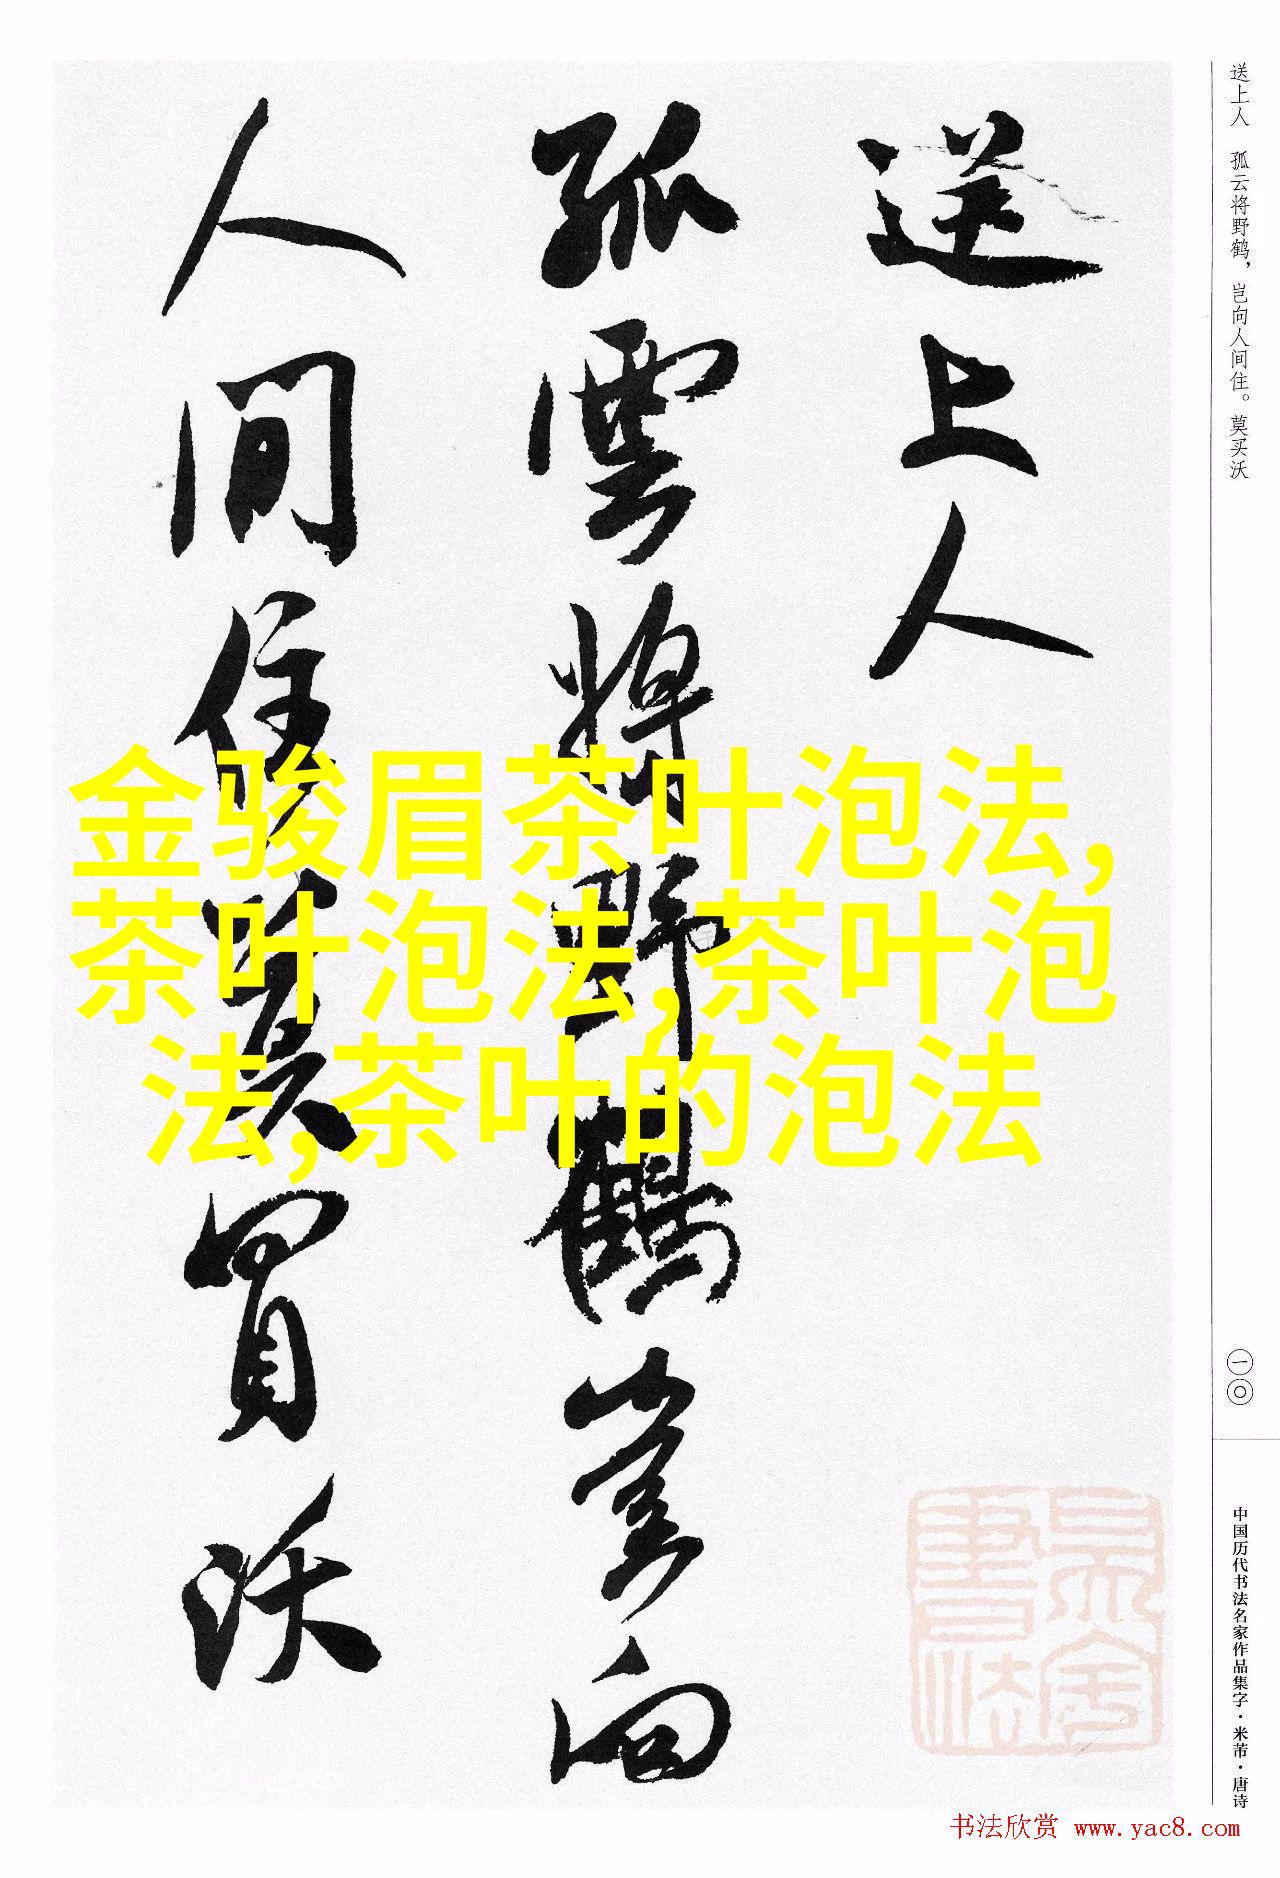 送上人
孤雲将野鶴豈向
人间住莫買沃
金骏眉茶叶泡法,
茶叶泡法,茶叶泡
法,茶叶的泡法
送上人 孤云将野鹤，岂向人间住。莫买沃
一〇
中国历代书法名家作品集字·米芾·唐诗
书法欣赏 www.yac8.com